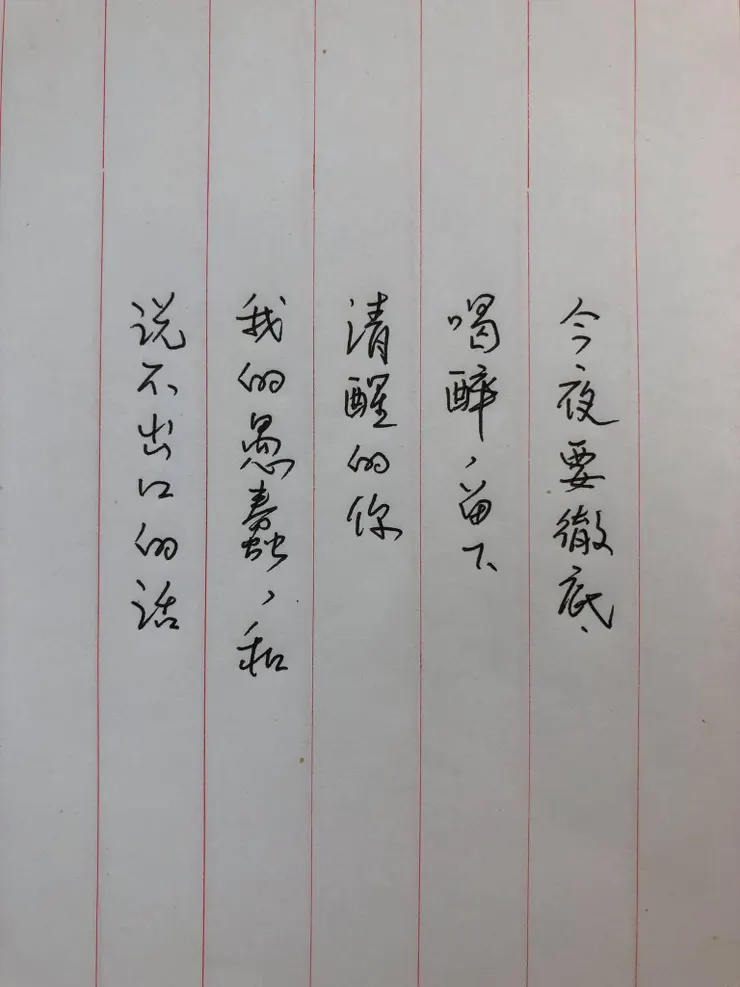 今夜要徹底
喝醉，留下
清醒的你
我的愚蠢，和
说不出口的话